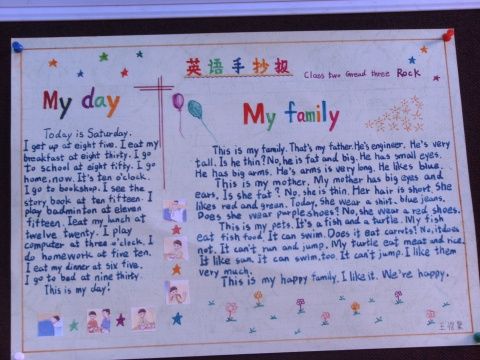 英语手抄报
Class two Gread three Rock
My day
Today is Saturday.
I get up at eight five. I eat my
breakfast at eight thirty. I go
to school at eight fifty. I go
home, now. It's ten o'clock.
I go to bookshop. I see the
story book at ten fifteen. I
play badminton at eleven
fifteen. I eat my lunch at
twelve twenty. I play
computer at three o'clock. I
do homework at five ten.
I eat my dinner at six five.
I go to bad at nine thirty.
This is my day!
My family
This is my family. That's my father. He's engineer. He's very
tall. Is he thin? No, he is fat and big. He has small eyes.
He has big arms. He's arms is very long. He likes blue.
This is my mother. My mother has big eyes and
ears. Is she fat? No, she is thin. Her hair is short. She
likes red and green. Today, She wear a shirt, blue jeans.
Does she wear purple shoes? No, she wear a red shoes.
This is my pets. It's a fish and a turtle. My fish
eat fish food. It can swim. Does it eat carrots? No, it does
not. It can't run and jump. My turtle eat meat and rice.
It like sun. It can swim, too. It can't jump. I like them
very much.
This is my happy family. I like it. We're happy.